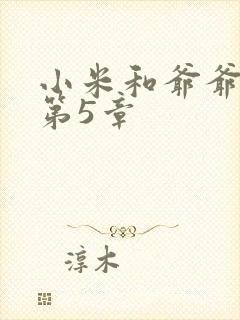 小米和爷爷
第5章
淳木